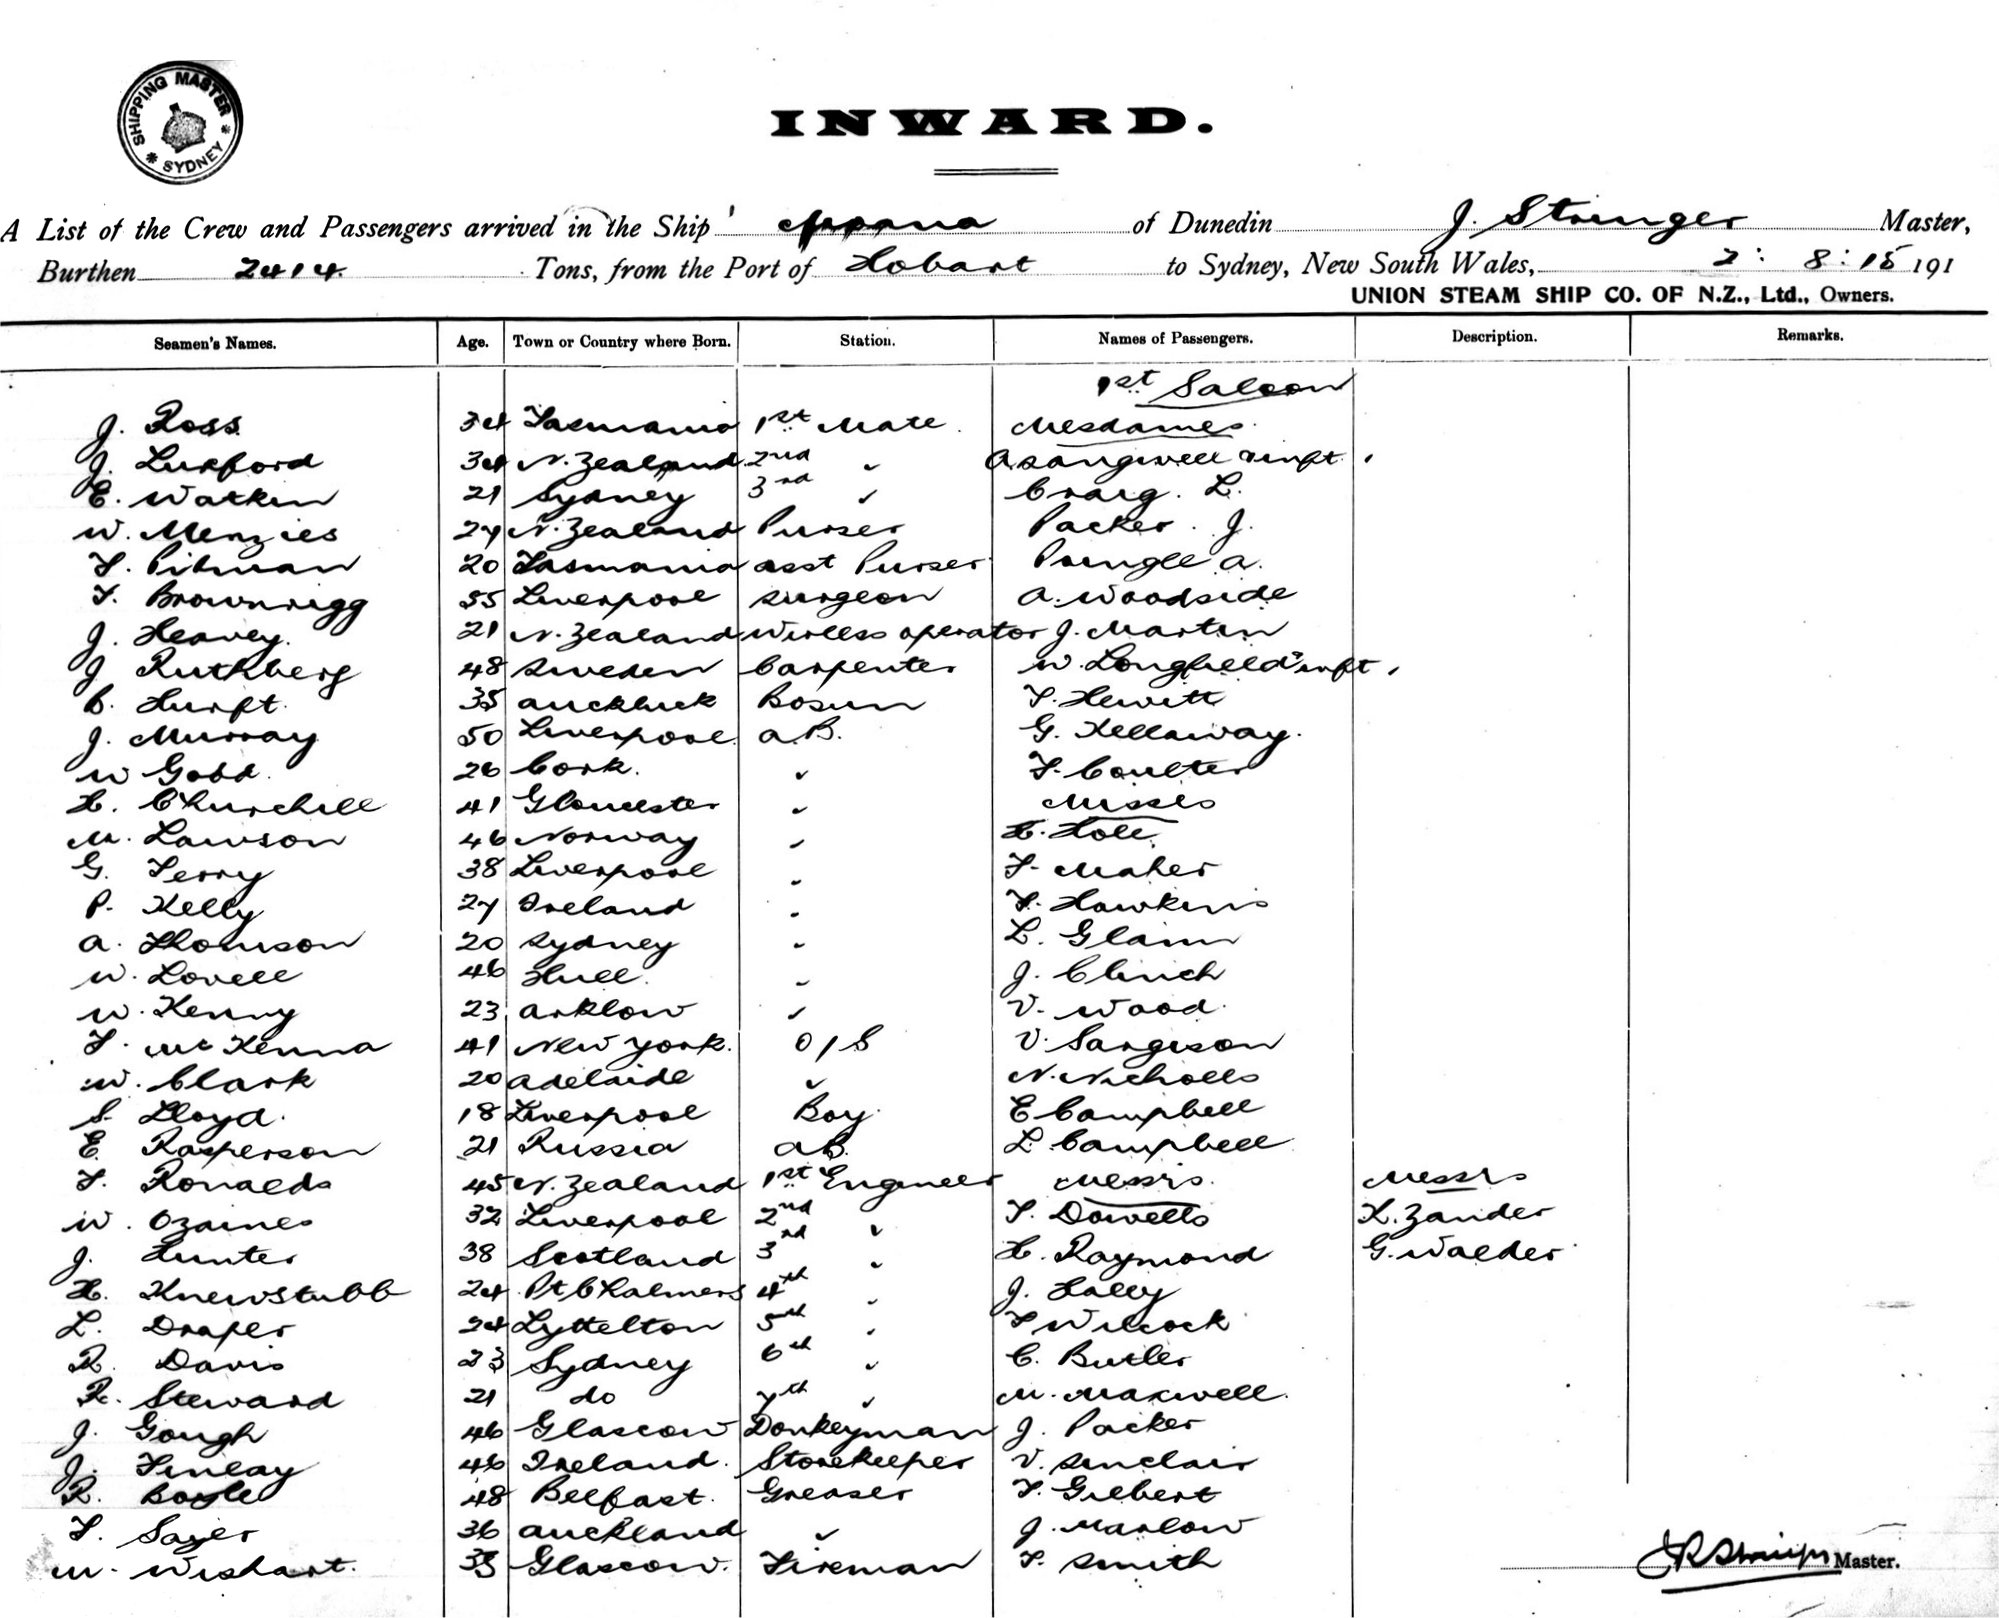 SHIPPING MASTER
* SYDNEY *
INWARD.
A List of the Crew and Passengers arrived in the Ship Moana of Dunedin J. Stringer Master,
Burthen 2414 Tons, from the Port of Hobart to Sydney, New South Wales, 2: 8: 15 191
UNION STEAM SHIP CO. OF N.Z., Ltd., Owners.
Seamen's Names. Age. Town or Country where Born. Station. Names of Passengers. Description. Remarks.
1st Saloon
J. Ross 34 Tasmania 1st Mate Mesdames
J. Luxford 34 N. Zealand 2nd " A. Sangwell & inft.
E. Watkin 21 Sydney 3rd " Craig. L.
W. Menzies 27 N. Zealand Purser Packer. J.
T. Pitman 20 Tasmania asst Purser Pringle A.
T. Brownrigg 55 Liverpool Surgeon A. Woodside
J. Heavey. 21 N. Zealand Wirless operator J. Martin
J Ruthberg 48 Sweden Carpenter W. Longfield & inft.
C. Hurft. 35 Bosun T. Hewitt
J. Murray 50 Liverpool A.B. G. Kellaway.
W Gobd. 26 Cork. " T. Coulter
H. Churchill 41 Gloucester " Misses
M. Lawson 46 Norway " H. Holl.
G. Terry 38 Liverpool " T. Maher
P. Kelly 27 Ireland " T. Hawkins
A. Thomson 20 Sydney " L. Glann
W. Lovell 46 Hull. " J. Clinch
W. Kenny 23 Arklow " V. Wood.
T. McKenna 41 New York. O/S V. Sargison
W. Clark 20 Adelaide " N. Nicholls
S. Lloyd. 18 Liverpool Boy. E Campbell
E. Rasperson 21 Russia AB. L. Campbell
T. Ronalds 45 N. Zealand 1st Engineer Messrs. Messrs
W. Ozaines 32 Liverpool 2nd " T. Dowells K. Zander
J. Hunter 38 Scotland 3rd " H. Raymond G. Walder
H. Knewstubb 24 Pt Chalmers 4th " J. Lally
L. Draper 24 Lyttelton 5th " T Wilcock
R. Davis 23 Sydney 6th " C. Butler
R. Steward 21 do 7th " M. Maxwell.
J. Gough 46 Glascow Donkeyman J. Packer
J. Finlay 46 Ireland. Storekeeper V. Sinclair
R. Boyle 48 Belfast. Greaser T. Gilbert
T. Sayer 36 Auckland " J. Marlow
M. Wishart. 33 Glascow. Fireman T. Smith
Master.